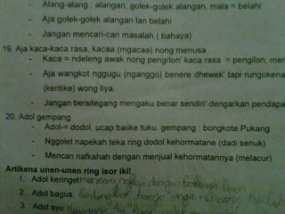 - Alang-alang : alangan, golek-golek alangan, mala = belahi
- Aja golek-golek alangan lan belahi
- Jangan mencari-cari masalah ( bahaya)
19. Aja kaca-kaca rasa, kacaa (ngacaa) nong menusa
- Kaca = ndeleng awak nong pengilon' kaca rasa = pengilon, men
- Aja wangkot nggugu (nganggo) benere dhewek' tapi rungokena
(kentike) wong liya.
- Jangan bersitegang mengaku benar sendiri' dengarkan pendapa
20. Adol gempang
- Adol-= dodol, ucap basike tuku, gempang : bongkote Pukang
- Nggolet napekah teka ring dodol kehormatane (dadi senuk)
- Mencari nafkahah dengan menjual kehormatannya (melacur)
Artikena unen-unen ring isor iki!
1. Adol keringet
2. Adol bagus
3. Adol ayu